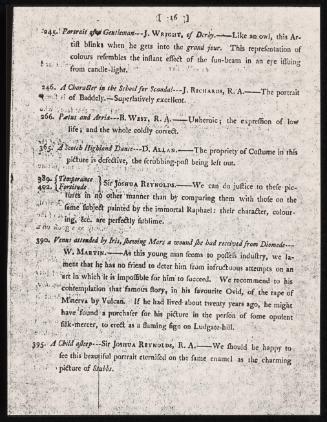 [ 16 ]
245. Portrait of a Gentleman---J. WRIGHT, of Derby.——Like an owl, this Ar-
tist blinks when he gets into the grand jour. This representation of
colours resembles the instant effect of the sun-beam in an eye issuing
from candle-light.
246. A Character in the School for Scandal---J. RICHARDS, R. A.——The portrait
of Baddely.—Superlatively excellent.
266. Pætus and Arria---B. WEST, R. A.——Unheroic; the expression of low
life; and the whole coldly correct.
365. A Scotch Highland Dance---D. ALLAN.——The propriety of Costume in this
picture is defective, the scrubbing-post being left out.
389. Temperance
402. Fortitude } Sir JOSHUA REYNOLDS.——We can do justice to these pic-
tures in no other manner than by comparing them with those on the
same subject painted by the immortal Raphael: their character, colour-
ing, &c. are perfectly sublime.
390. Venus attended by Iris, shewing Mars a wound she had received from Diomede---
W. MARTIN.——As this young man seems to possess industry, we la-
ment that he has no friend to deter him from infructuous attempts on an
art in which it is impossible for him to succeed. We recommend to his
contemplation that famous story, in his favourite Ovid, of the rape of
Minerva by Vulcan. If he had lived about twenty years ago, he might
have found a purchaser for his picture in the person of some opulent
silk-mercer, to erect as a flaming sign on Ludgate-hill.
395. A Child asleep---Sir JOSHUA REYNOLDS, R. A.——We should be happy to
see this beautiful portrait eternised on the same enamel as the charming
picture of Stubbs.